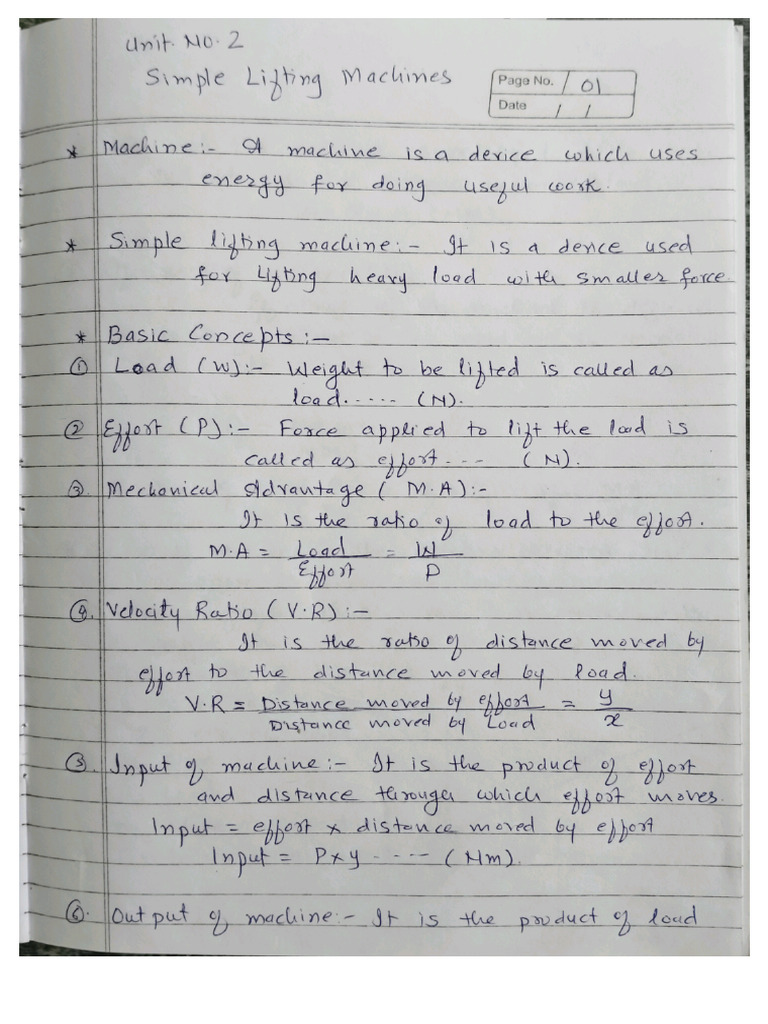 Unit. No. 2
Simple Lifting Machines
Page No. / 01
Date / /
* Machine:- A machine is a device which uses
energy for doing useful work.
* Simple lifting machine:- It is a device used
for lifting heavy load with smaller force.
* Basic Concepts:-
① Load (W):- Weight to be lifted is called as
load..... (N).
② Effort (P):- Force applied to lift the load is
called as effort.... (N).
③ Mechanical Advantage ( M.A):-
It is the ratio of load to the effort.
M.A = Load / Effort = W / P
④. Velocity Ratio (V.R):-
It is the ratio of distance moved by
effort to the distance moved by load.
V.R = Distance moved by effort / Distance moved by Load = y / x
⑤. Input of machine:- It is the product of effort
and distance through which effort moves.
Input = effort x distance moved by effort
Input = P x y ..... (Nm).
⑥. Output of machine:- It is the product of load